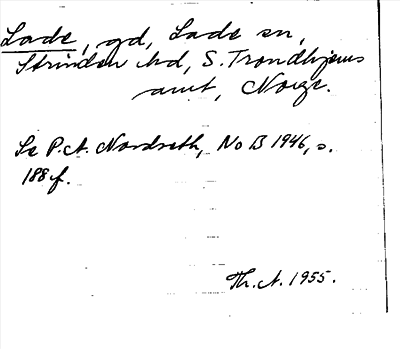 Lade, gd, Lade sn,
Strinden hd, S. Trondhjems
amt, Norge.
Se P. A. Nordseth, NoB 1946, s.
188 f.
Th. A. 1955.